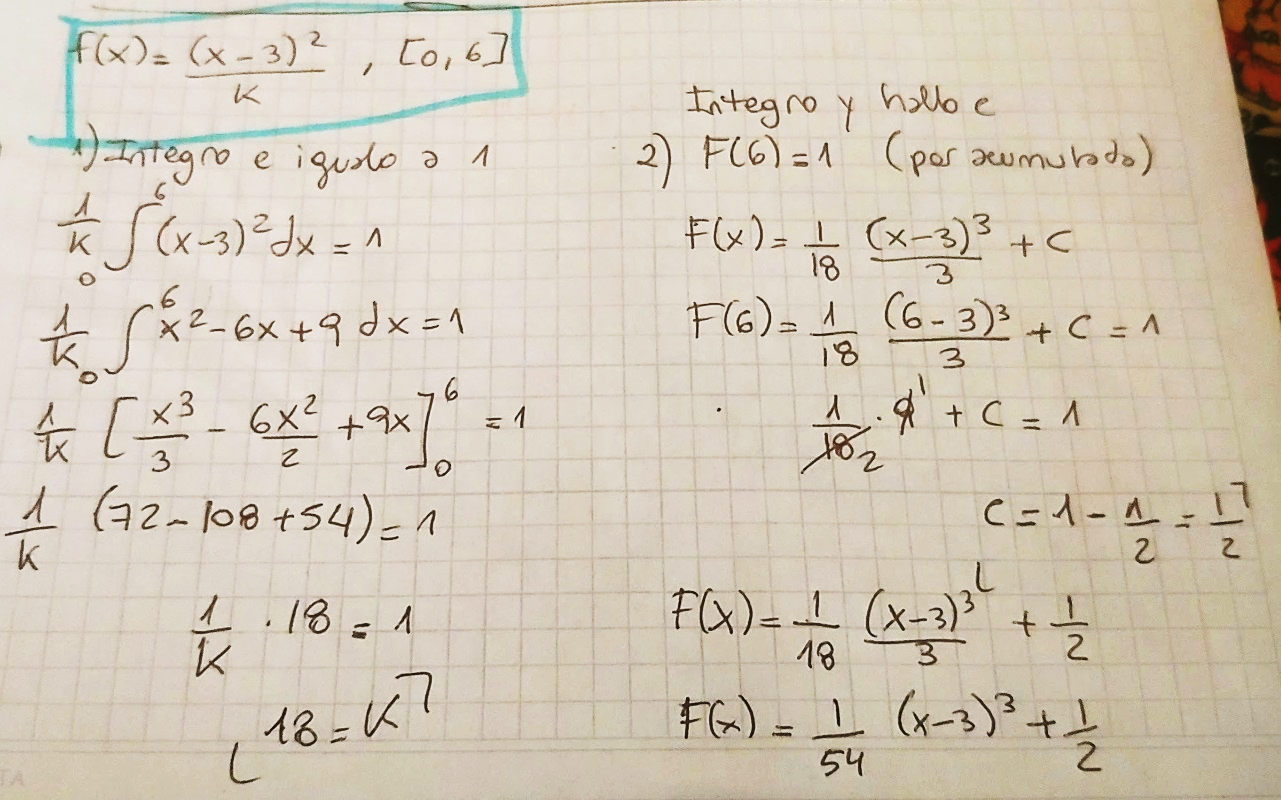 f(x) = (x-3)²/k , [0,6]
1) Integro e igualo a 1
1/k ∫₀⁶ (x-3)² dx = 1
1/k ∫₀⁶ x² - 6x + 9 dx = 1
1/k [x³/3 - 6x²/2 + 9x]₀⁶ = 1
1/k (72 - 108 + 54) = 1
1/k · 18 = 1
18 = k
Integro y hallo c
2) F(6) = 1 (por acumulada)
F(x) = 1/18 (x-3)³/3 + C
F(6) = 1/18 (6-3)³/3 + C = 1
1/18 2 · 9 1 + C = 1
C = 1 - 1/2 = 1/2
F(x) = 1/18 (x-3)³/3 + 1/2
F(x) = 1/54 (x-3)³ + 1/2